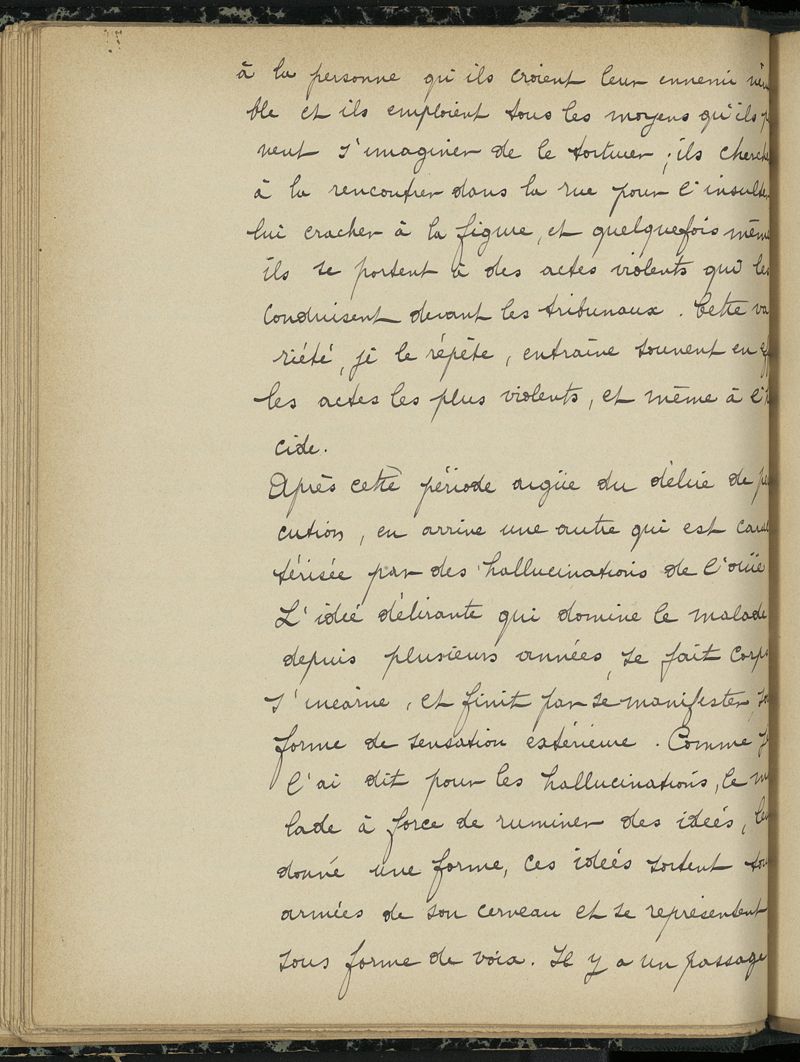 à la personne qu'ils croient leur ennemi
ble et ils emploient tous les moyens qu'ils p
vent s'imaginer de le torturer ; ils cherche
à la rencontrer dans la rue pour l'insulter
lui cracher à la figure, et quelquefois même
ils se portent à des actes violents qui les
conduisent devant les tribunaux. Cette va
riété, je le répète, entraîne souvent en eff
les actes les plus violents, et même à l'h
cide.
Après cette période aigüe du délire de per
cution, en arrive une autre qui est carac
térisée par des hallucinations de l'ouïe
L'idée délirante qui domine le malade
depuis plusieurs années, se fait corps
s'incarne, et finit par se manifester, sou
forme de sensation extérieure. Comme je
l'ai dit pour les hallucinations, le ma
lade à force de ruminer des idées, leu
donné une forme, ces idées sortent tou
armées de son cerveau et se représentent
sous forme de voix. Il y a un passage